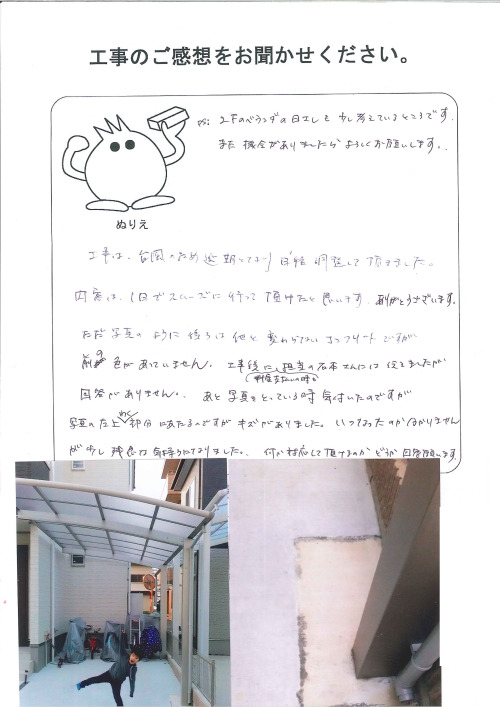 工事のご感想をお聞かせください。
2Fのベランダの日よしも少し考えているところです。
また機会がありましたらよろしくお願いします。
ぬりえ
工事は、台風のため延期になり日程調整して頂きました。
内容は、1日でスムーズに行って頂けたと思います。ありがとうございます。
ただ写真のように後ろは他と変わらないコンクリートですが
前の色があっていません。工事後に、担当の石本さんには伝えましたが
回答がありません。あと写真をとっている時気付いたのですが
写真の左上部分にあたるのですがキズがありました。いつなったのか分かりません
が少し残念な気持ちになりました。何か対応して頂けるのかどうか回答願います。